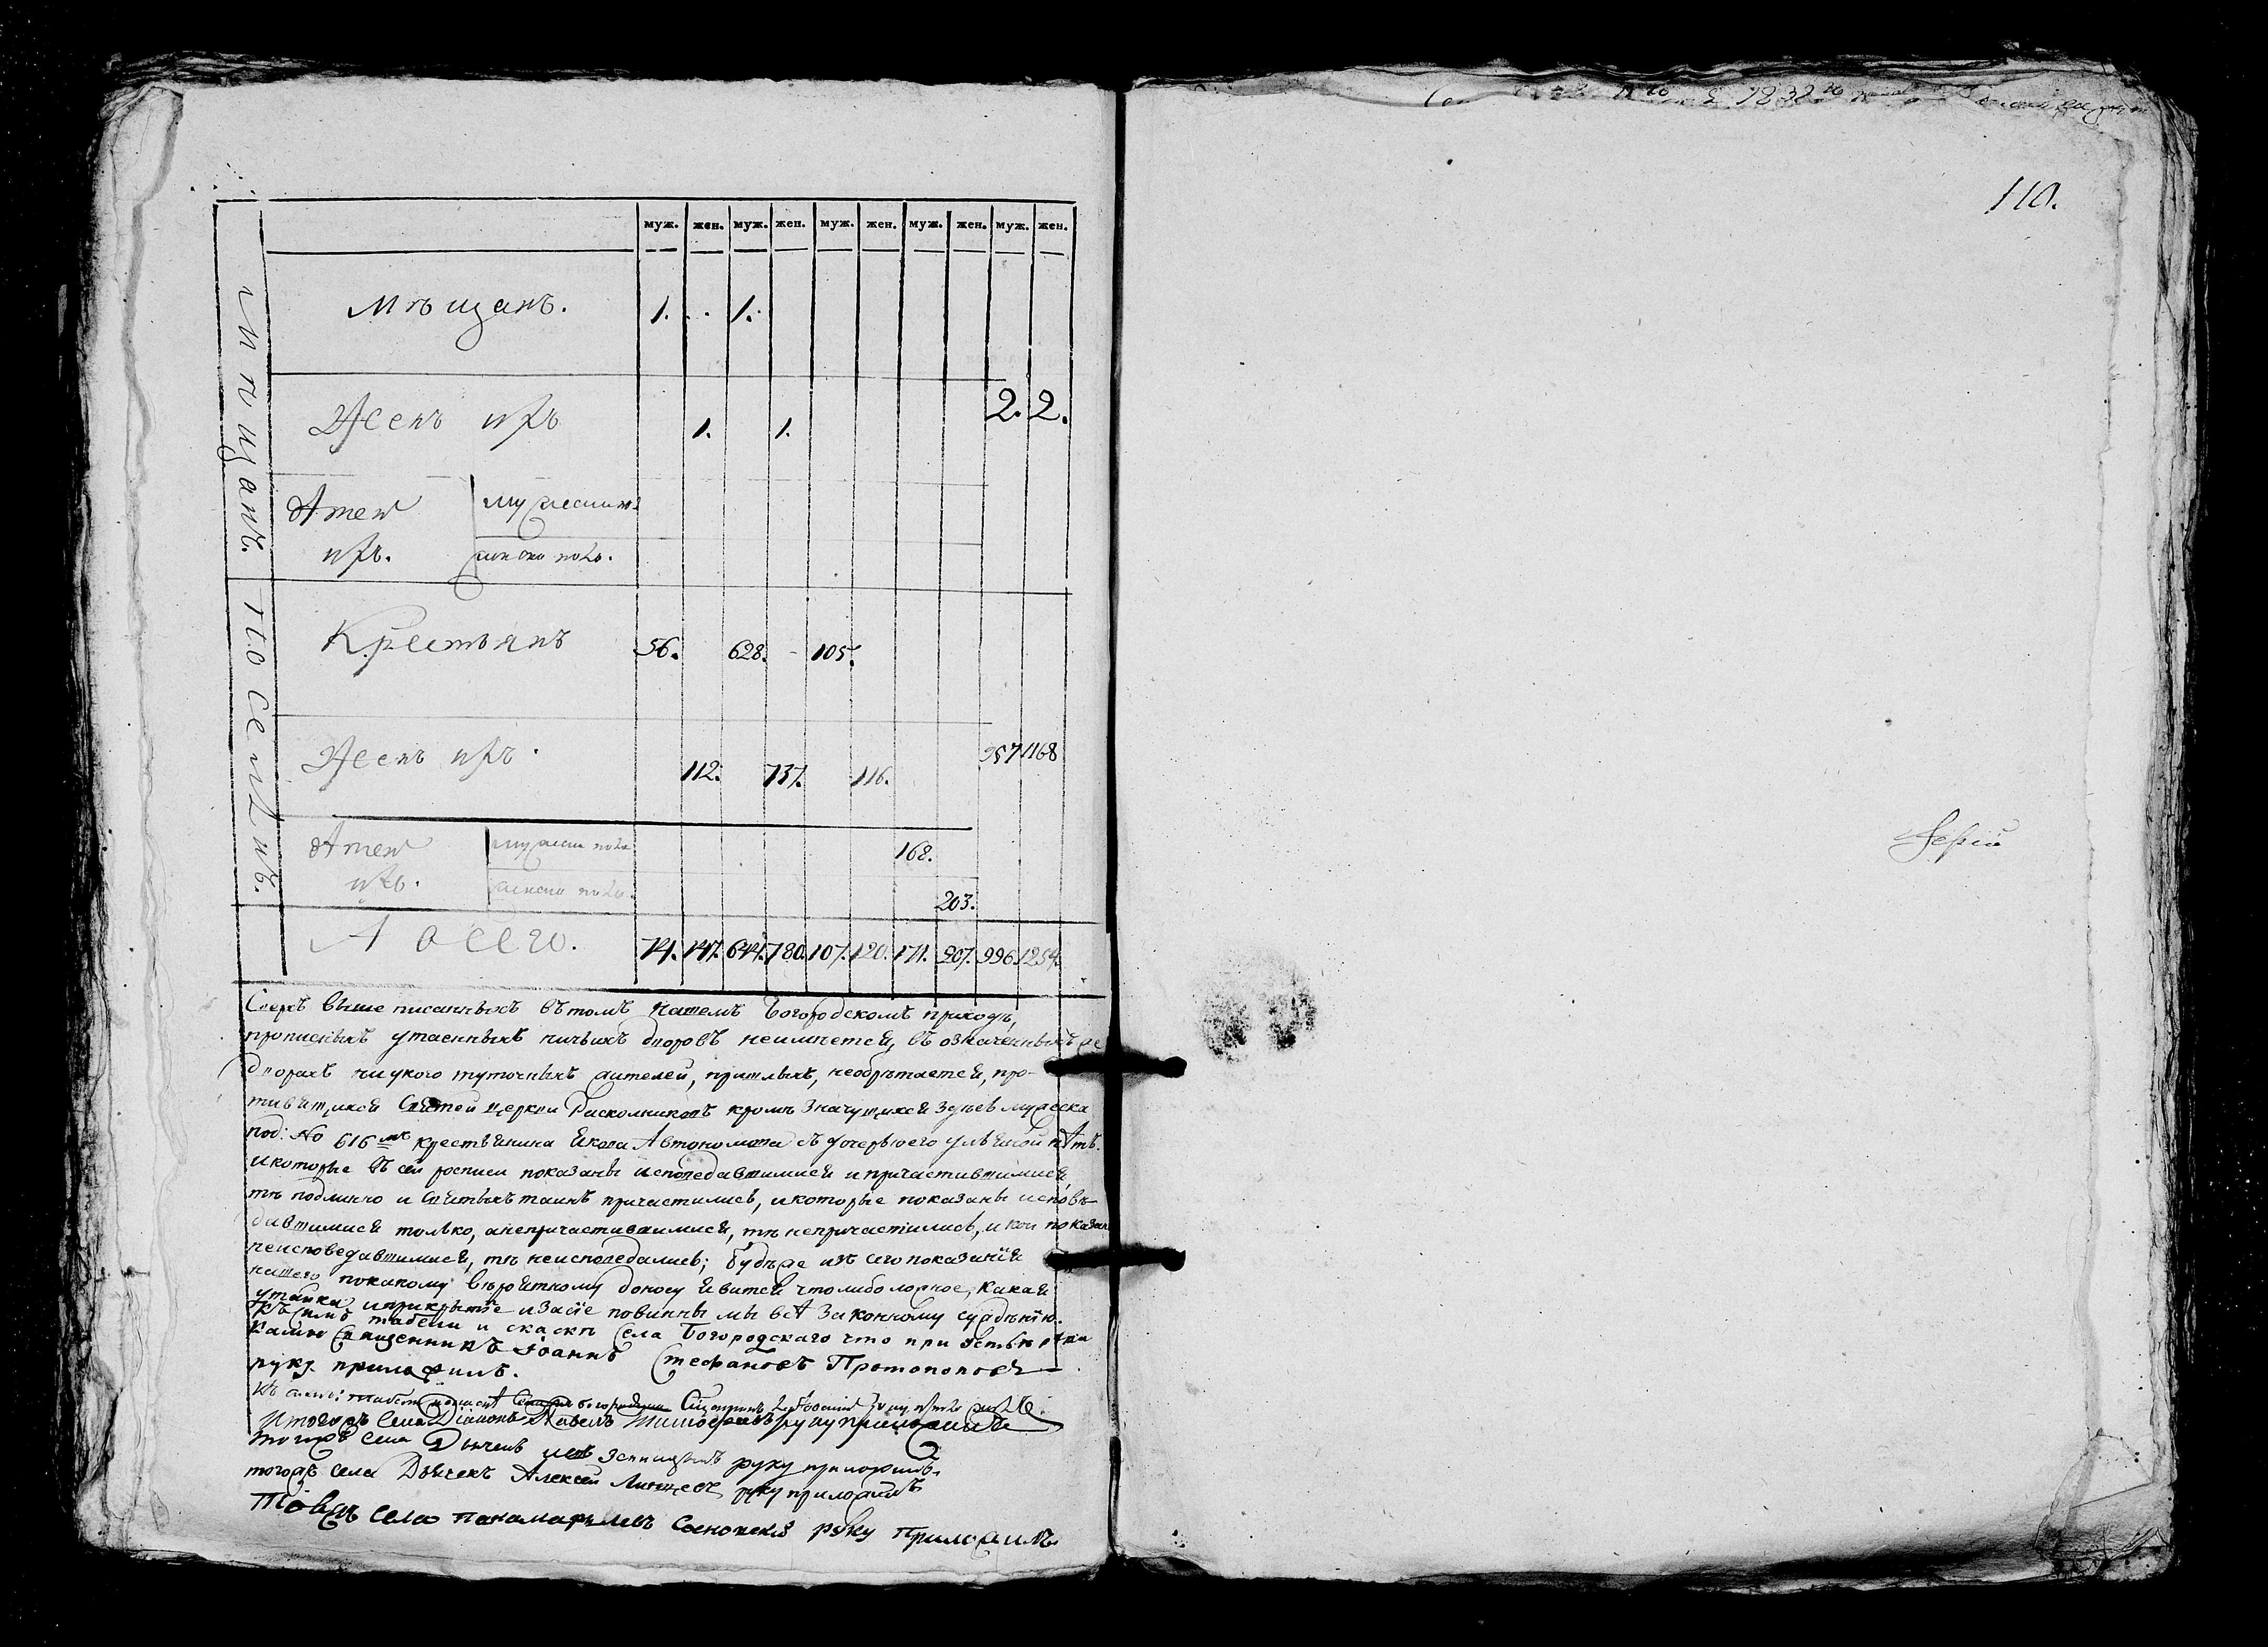 муж. жен. муж. жен. муж. жен. муж. жен. муж. жен.
Мѣщанъ.
Мѣщанъ. 1. 1.
Женъ ихъ 1. 1. 2. 2.
Дѣтей
ихъ.
женска полу.
Поселянъ.
Крестьянъ 56. 628. 105.
Женъ ихъ 112. 737. 116. 957 1168
Дѣтей мужеска полу 168.
ихъ. женска полу. 203.
А всего. 74. 147. 644. 780. 107. 120. 171. 207. 996. 1254.
Сверхъ выше писанныхъ въ томъ нашемъ Богородскомъ приходѣ,
прописныхъ утаенныхъ ничьихъ дворовъ неимѣется, въ означенныхъ же
дворахъ никого туточныхъ жителей, пришлыхъ, необрѣтается, про-
тивящихся Святей церкви Раскольниковъ кромѣ значущихся здѣсь мужеска
под: No 616 мъ крестьянина Якова Автономова съ дочерью его Ульяной нѣтъ.
икоторые въ сей росписи показаны исповедавшимися ипричастившимися,
тѣ подлинно и Святыхъ таинъ причастились, икоторые показаны исповѣ-
давшимися только, анепричастившимися, тѣ непричастились, и кои показан
неисповедавшимися, тѣ неисповедались; Будѣже изъ сего показания
нашего покакому вѣроятному доносу явится чтолибо ложное, какая
утайка иприкрытіе изасіе повинны мы всѣ законному сужденію.
Къ симъ табели и скаскѣ села Богородскаго что при устьѣ рѣки
Священникъ Іоаннъ Стефановъ Протопоповъ
руку приложилъ.
Итогожъ села Діаконъ Павелъ руку приложилъ
тогожъ села Дьячекъ руку приложилъ.
тогожъ села Дьячекъ Алексей руку приложилъ
Товожъ села панамарь Сосновский руку приложилъ
1838
110.